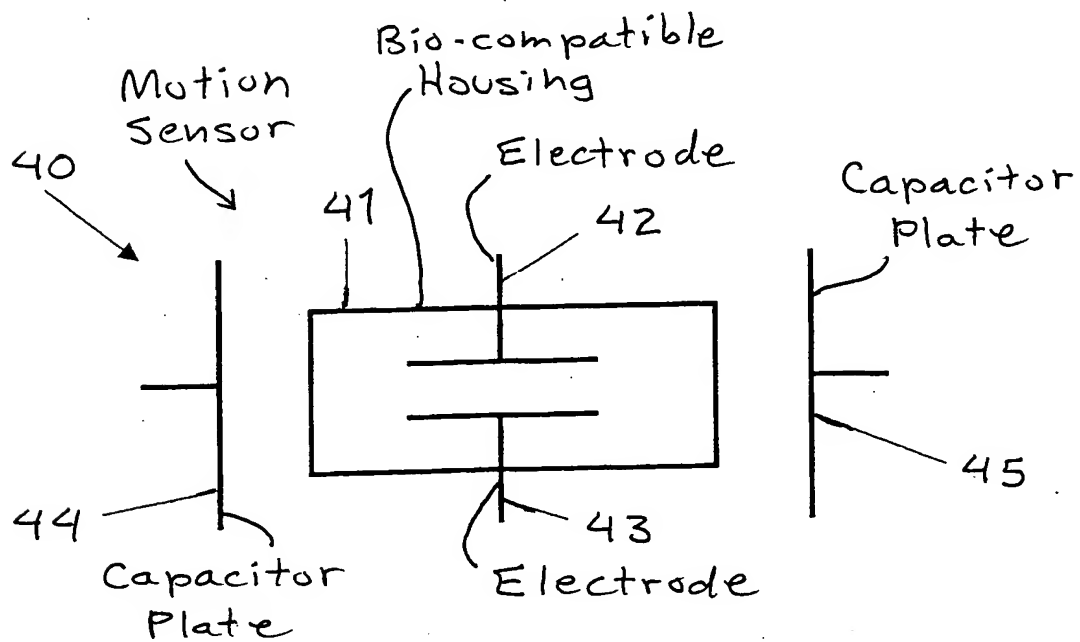 Bio-compatible
Housing
Motion
Sensor
Electrode
40
41
42
Capacitor
Plate
44
43
45
Capacitor
Plate
Electrode